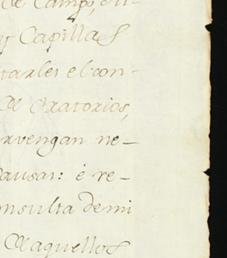 de Campo, ó u-
y Capillas
tarles el con-
de Oratorios,
rvengan ne-
causas: é re-
onsulta de mi
de aquellos